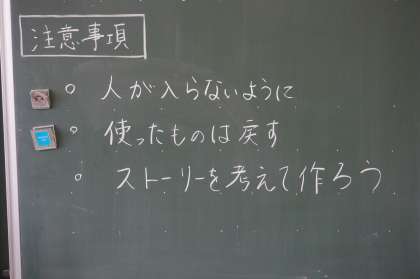 注意事項
○ 人が入らないように
○ 使ったものは戻す
○ ストーリーを考えて作ろう